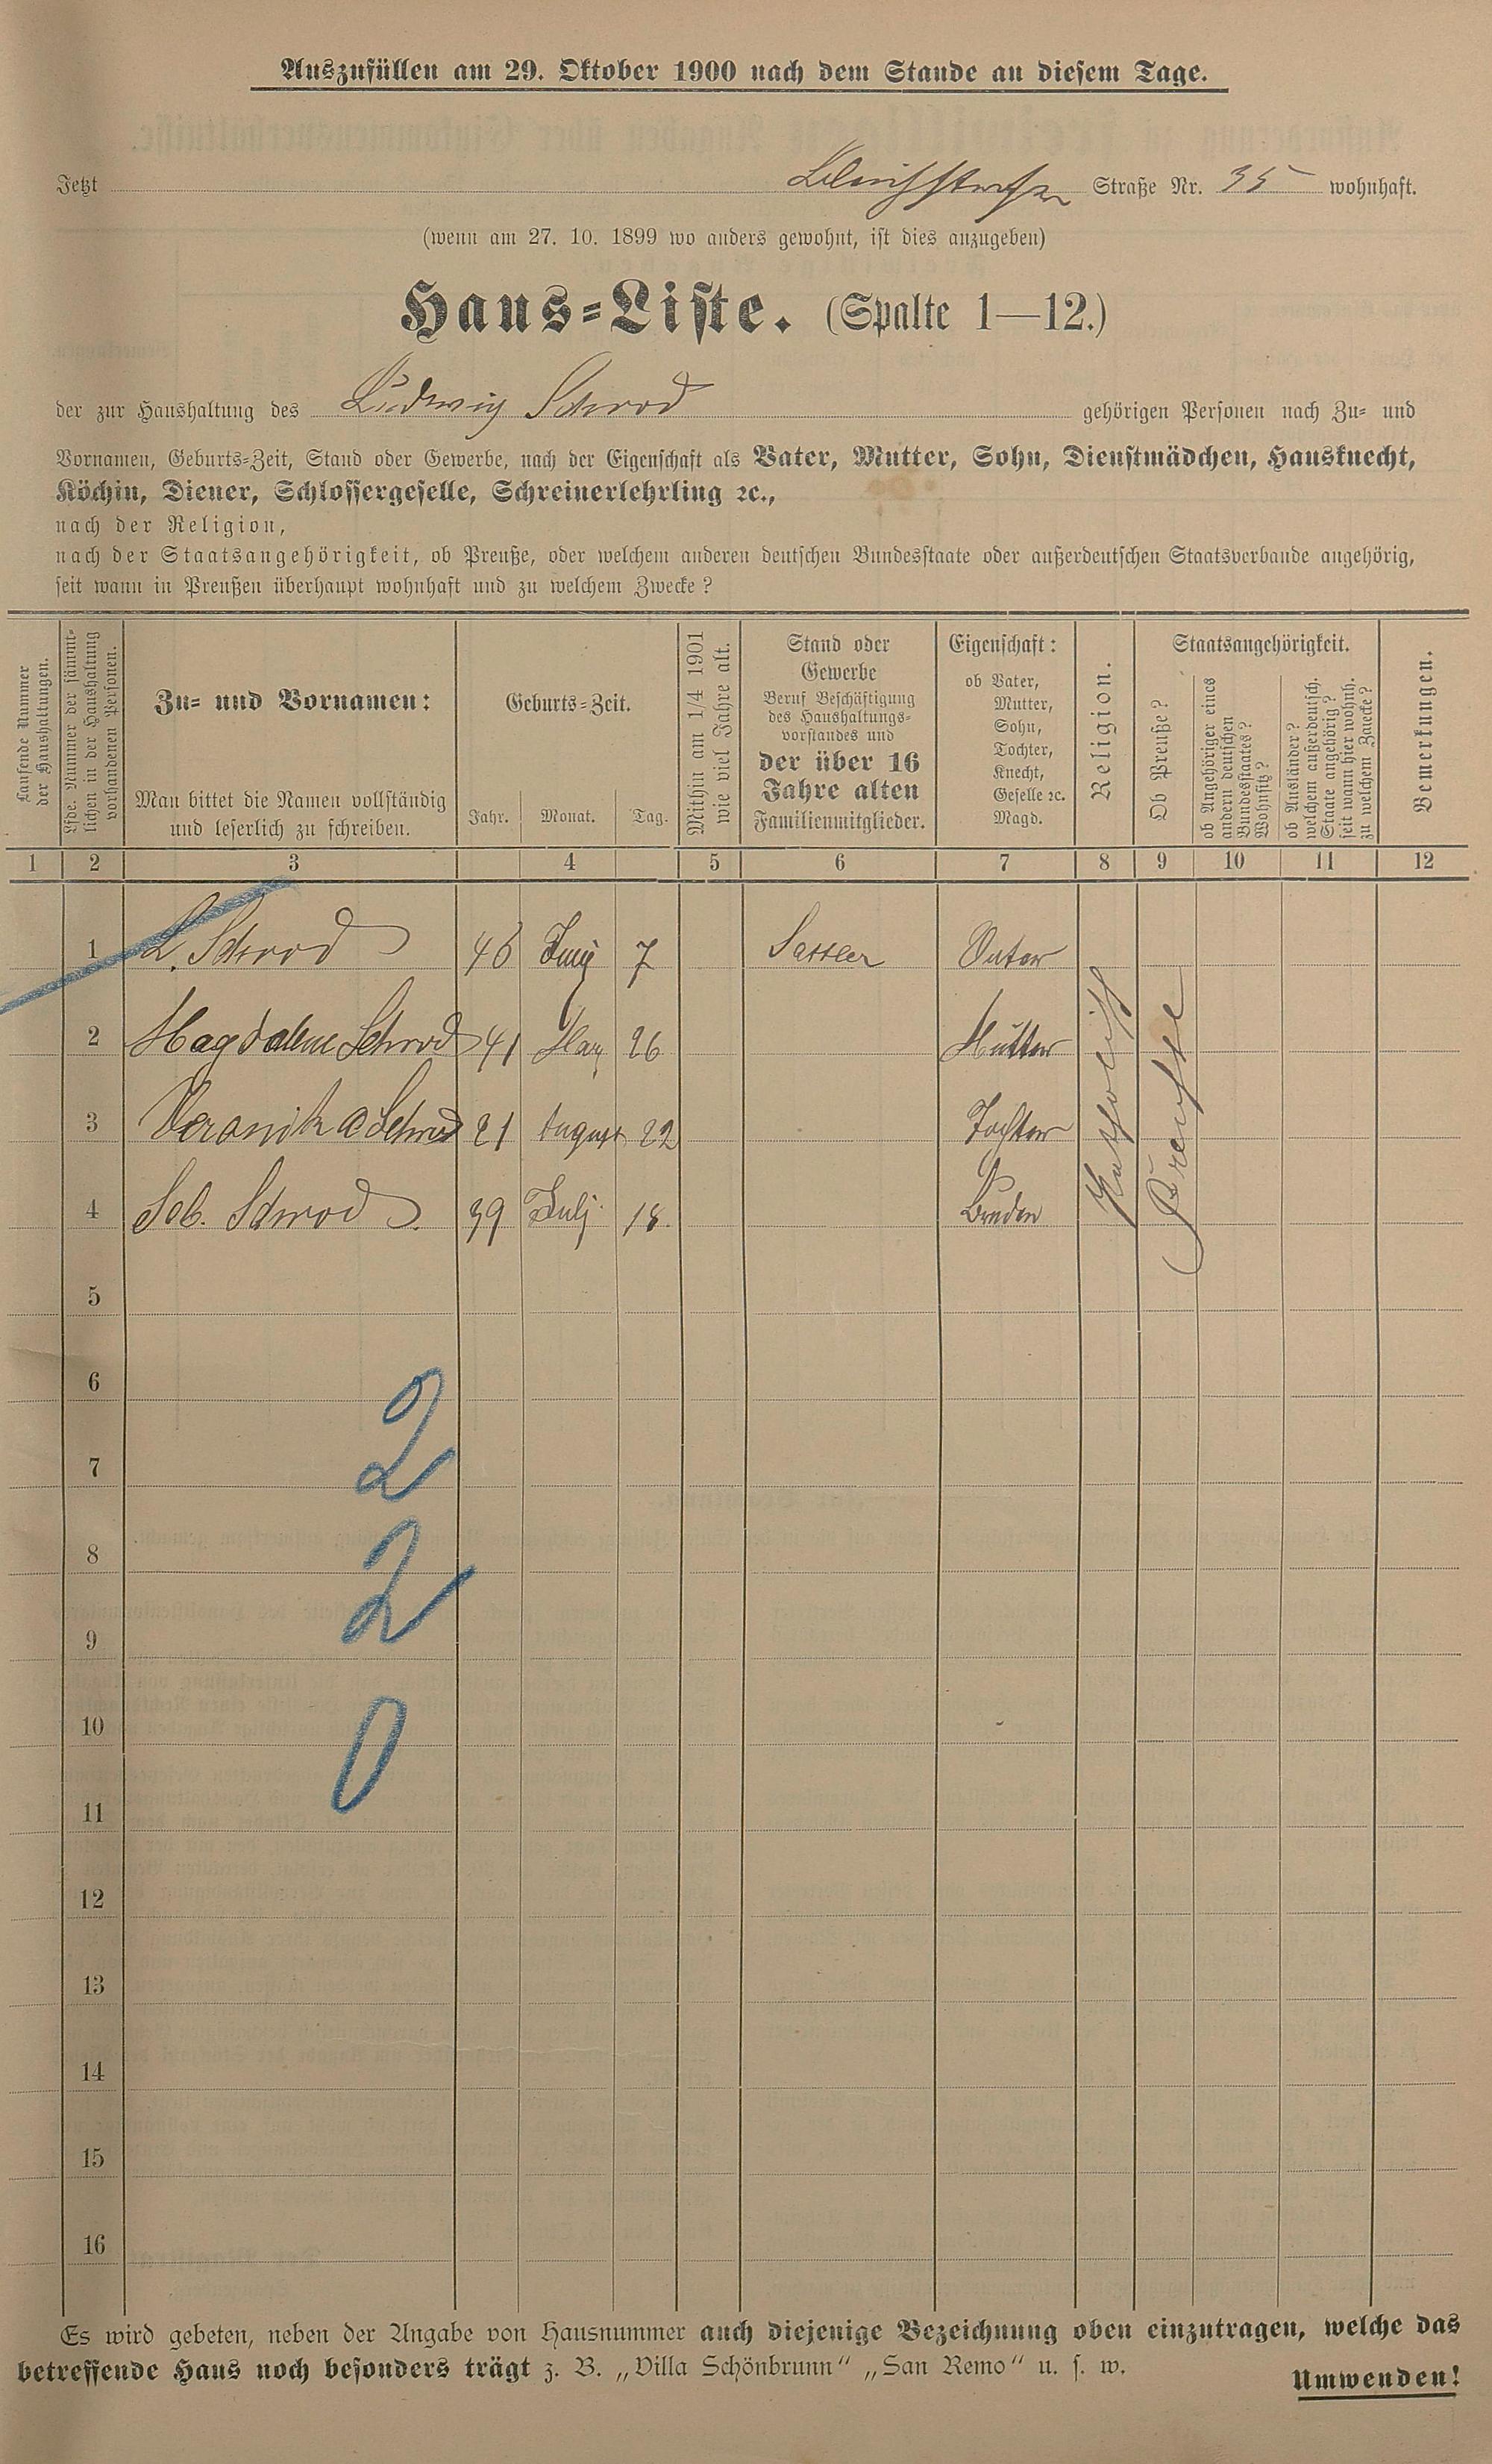 Auszufüllen am 29. Oktober 1900 nach dem Stande an diesem Tage.
Jetzt Straße Nr. 35 wohnhaft.
(wenn am 27. 10. 1899 wo anders gewohnt, ist dies anzugeben)
Haus-Liste. (Spalte 1—12.)
der zur Haushaltung des Ludwig Schrod gehörigen Personen nach Zu- und
Vornamen, Geburts-Zeit, Stand oder Gewerbe, nach der Eigenschaft als Vater, Mutter, Sohn, Dienstmädchen, Hausknecht,
Köchin, Diener, Schlossergeselle, Schreinerlehrling ꝛc.,
nach der Religion,
nach der Staatsangehörigkeit, ob Preuße, oder welchem anderen deutschen Bundesstaate oder außerdeutschen Staatsverbande angehörig,
seit wann in Preußen überhaupt wohnhaft und zu welchem Zwecke?
Laufende Nummer
der Haushaltungen.
Lfde. Nummer der sämmt-
lichen in der Haushaltung
vorhandenen Personen.
Zu- und Vornamen:
Man bittet die Namen vollständig
und leserlich zu schreiben.
Geburts-Zeit.
Jahr. Monat. Tag.
Mithin am 1/4 1901
wie viel Jahre alt.
Stand oder
Gewerbe
Beruf Beschäftigung
des Haushaltungs-
vorstandes und
der über 16
Jahre alten
Familienmitglieder.
Eigenschaft:
ob Vater,
Mutter,
Sohn,
Tochter,
Knecht,
Geselle ꝛc.
Magd.
Religion.
Staatsangehörigkeit.
Ob Preuße?
ob Angehöriger eines
andern deutschen
Bundesstaates?
Wohnsitz?
ob Ausländer?
welchem außerdeutsch.
Staate angehörig?
seit wann hier wohnh.
zu welchem Zwecke?
Bemerkungen.
1 2 3 4 5 6 7 8 9 10 11 12
1 L. Schrod 46 Juny 7 Vater
2 Magdalene Schrod 41 May 26 Mutter
3 Veronika Schrod 21 August 22 Tochter
4 Seb. Schrod 39 Julj 18. Bruder
Katholisch
Preusse
5
6
7
8
9
10
11
12
13
14
15
16
2
2
0
Es wird gebeten, neben der Angabe von Hausnummer auch diejenige Bezeichnung oben einzutragen, welche das
betreffende Haus noch besonders trägt z. B. „Villa Schönbrunn“ „San Remo“ u. s. w.
Umwenden!